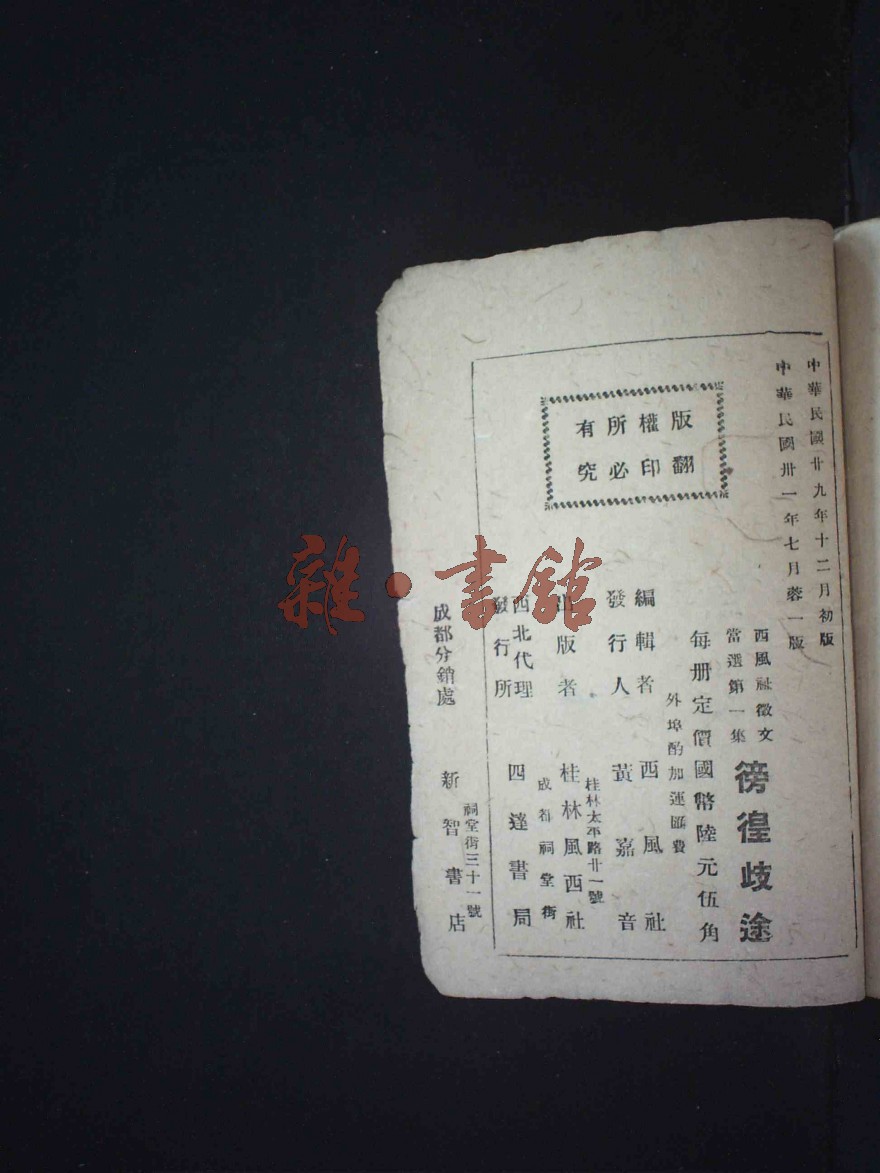 中華民國廿九年十二月初版
中華民國卅一年七月蓉一版
西風社徵文
當選第一集
徬徨歧途
每册定價國幣陸元伍角
外埠酌加運匯費
版權所有
翻印必究
編輯者 西風社
發行人 黃嘉音
桂林太平路廿一號
出版者 桂林風西社
成都祠堂街
西北代理
發行所 四達書局
祠堂街三十一號
成都分銷處 新智書店
雜·書館